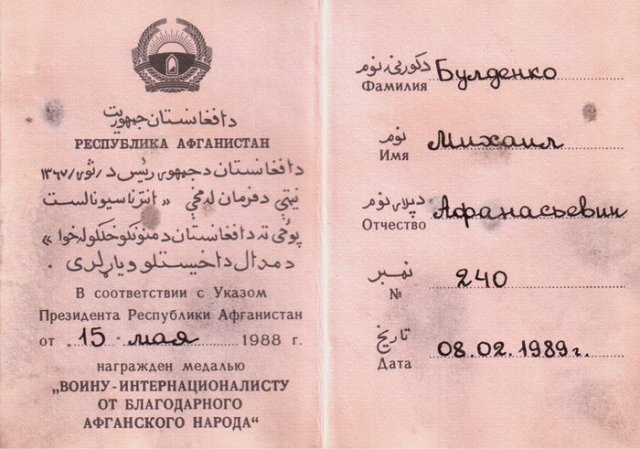 دافغانستان جمهوریت
РЕСПУБЛИКА АФГАНИСТАН
دافغانستان دجمهوري رئیس د / ثور / ۱۳۶۷
نیټې دفرمان له مخې « انترناسیونالست
پوځي ته دافغانستان دمننو نکو خلکو له خوا »
دمدال داخیستلو ویاړ لري .
В соответствии с Указом
Президента Республики Афганистан
от „ 15 “ мая 1988 г.
награжден медалью
„ВОИНУ-ИНТЕРНАЦИОНАЛИСТУ
ОТ БЛАГОДАРНОГО
АФГАНСКОГО НАРОДА“
دکورنۍ نوم
Фамилия Булденко
نوم
Имя Михаил
دپلار نوم
Отчество Афанасьевич
نمبر
№ 240
تاریخ
Дата 08.02.1989г.